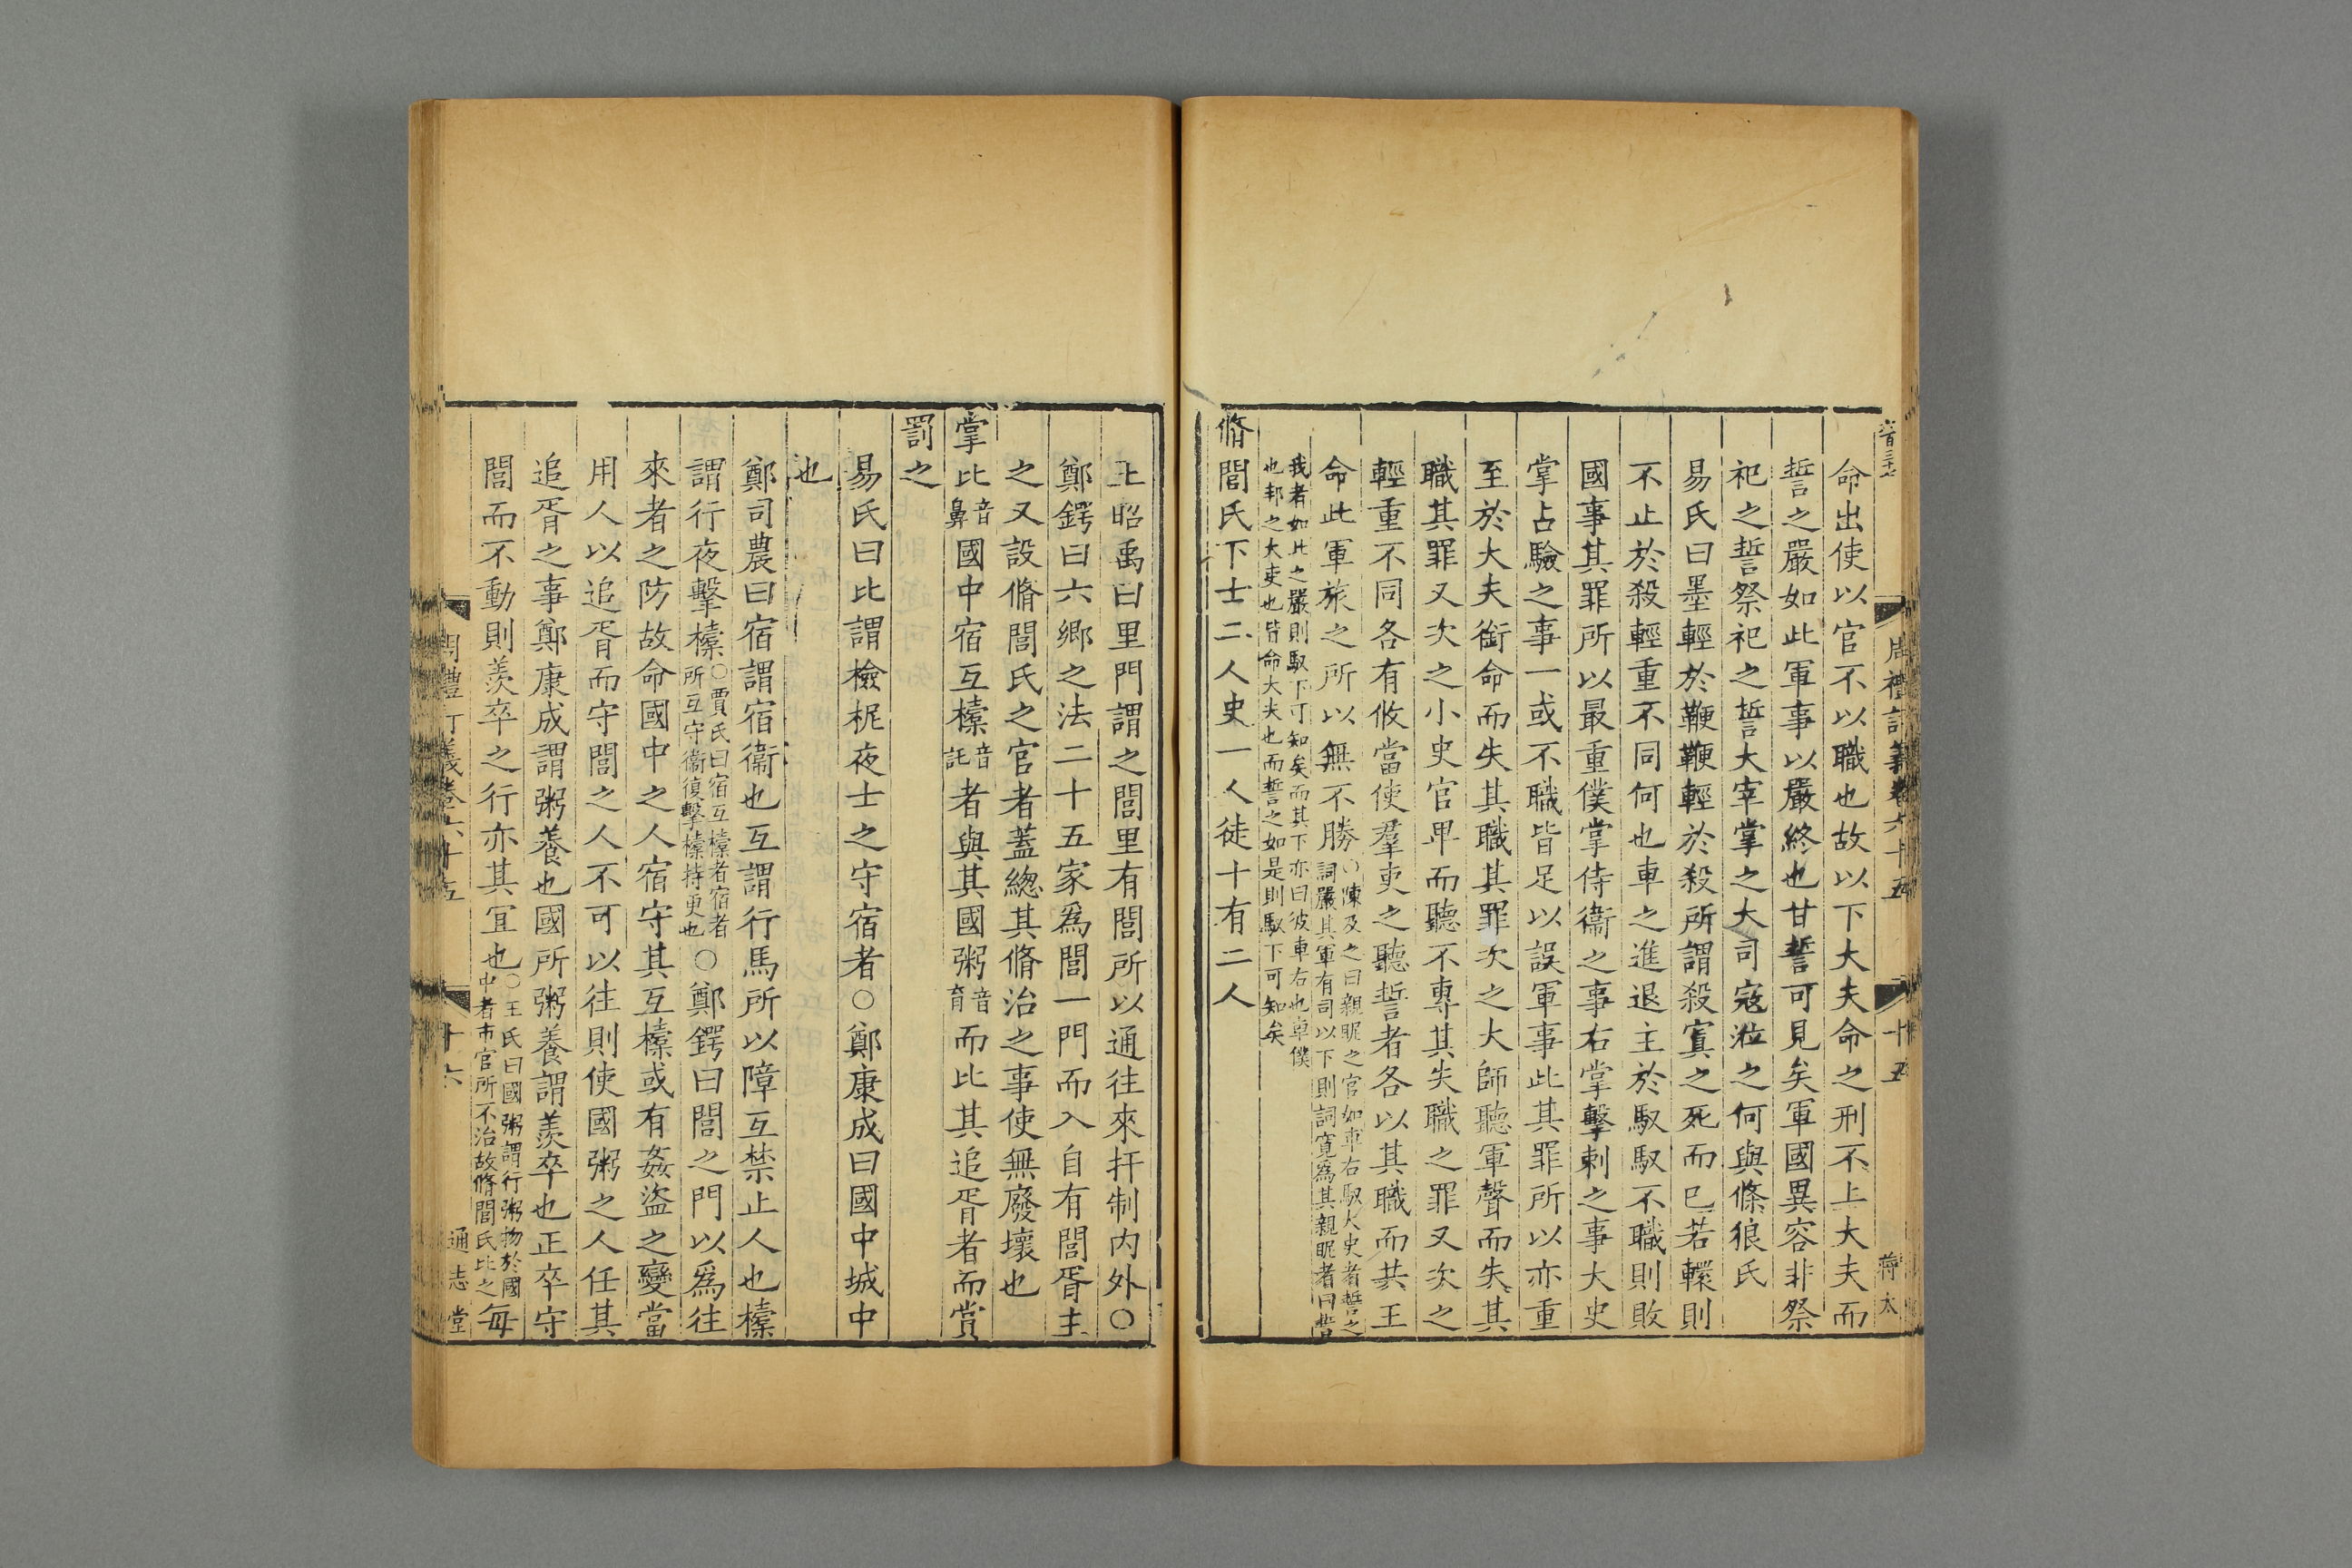 周禮訂義卷六十五 十五
命出使以官不以職也故以下大夫命之刑不上大夫而
誓之嚴如此軍事以嚴終也甘誓可見矣軍國異容非祭
祀之誓祭祀之誓大宰掌之大司寇涖之何與條狼氏
易氏曰墨輕於鞭鞭輕於殺所謂殺寘之死而已若轘則
不止於殺輕重不同何也車之進退主於馭馭不職則敗
國事其罪所以最重僕掌侍衞之事右掌擊刺之事大史
掌占驗之事一或不職皆足以誤軍事此其罪所以亦重
至於大夫銜命而失其職其罪次之大師聽軍聲而失其
職其罪又次之小史官卑而聽不專其失職之罪又次之
輕重不同各有攸當使羣吏之聽誓者各以其職而共王
命此軍旅之所以無不勝〇陳及之曰親昵之官如車右馭大史者誓之
詞嚴其軍有司以下則詞寬爲其親昵者曰昔
我者如此之嚴則馭下可知矣而其下亦曰彼車右也車僕
也邦之大吏也皆命大夫也而誓之如是則馭下可知矣
脩閭氏下士二人史一人徒十有二人
王昭禹曰里門謂之閭里有閭所以通往來扞制内外〇
鄭鍔曰六鄉之法二十五家爲閭一門而入自有閭胥主
之又設脩閭氏之官者蓋總其脩治之事使無廢壞也
掌比音鼻國中宿互㯓音託者與其國粥音育而比其追胥者而賞
罰之
易氏曰比謂檢柅夜士之守宿者〇鄭康成曰國中城中
也
鄭司農曰宿謂宿衞也互謂行馬所以障互禁止人也㯓
謂行夜擊㯓〇賈氏曰宿互㯓者宿者所互守衞復擊㯓持更也〇鄭鍔曰閭之門以爲往
來者之防故命國中之人宿守其互㯓或有姦盜之變當
用人以追胥而守閭之人不可以往則使國粥之人任其
追胥之事鄭康成謂粥養也國所粥養謂羨卒也正卒守
閭而不動則羨卒之行亦其宜也〇王氏曰國粥謂行粥物於國中者市官所不治故脩閭氏比之每
周禮訂義卷六十五 十六 通志堂